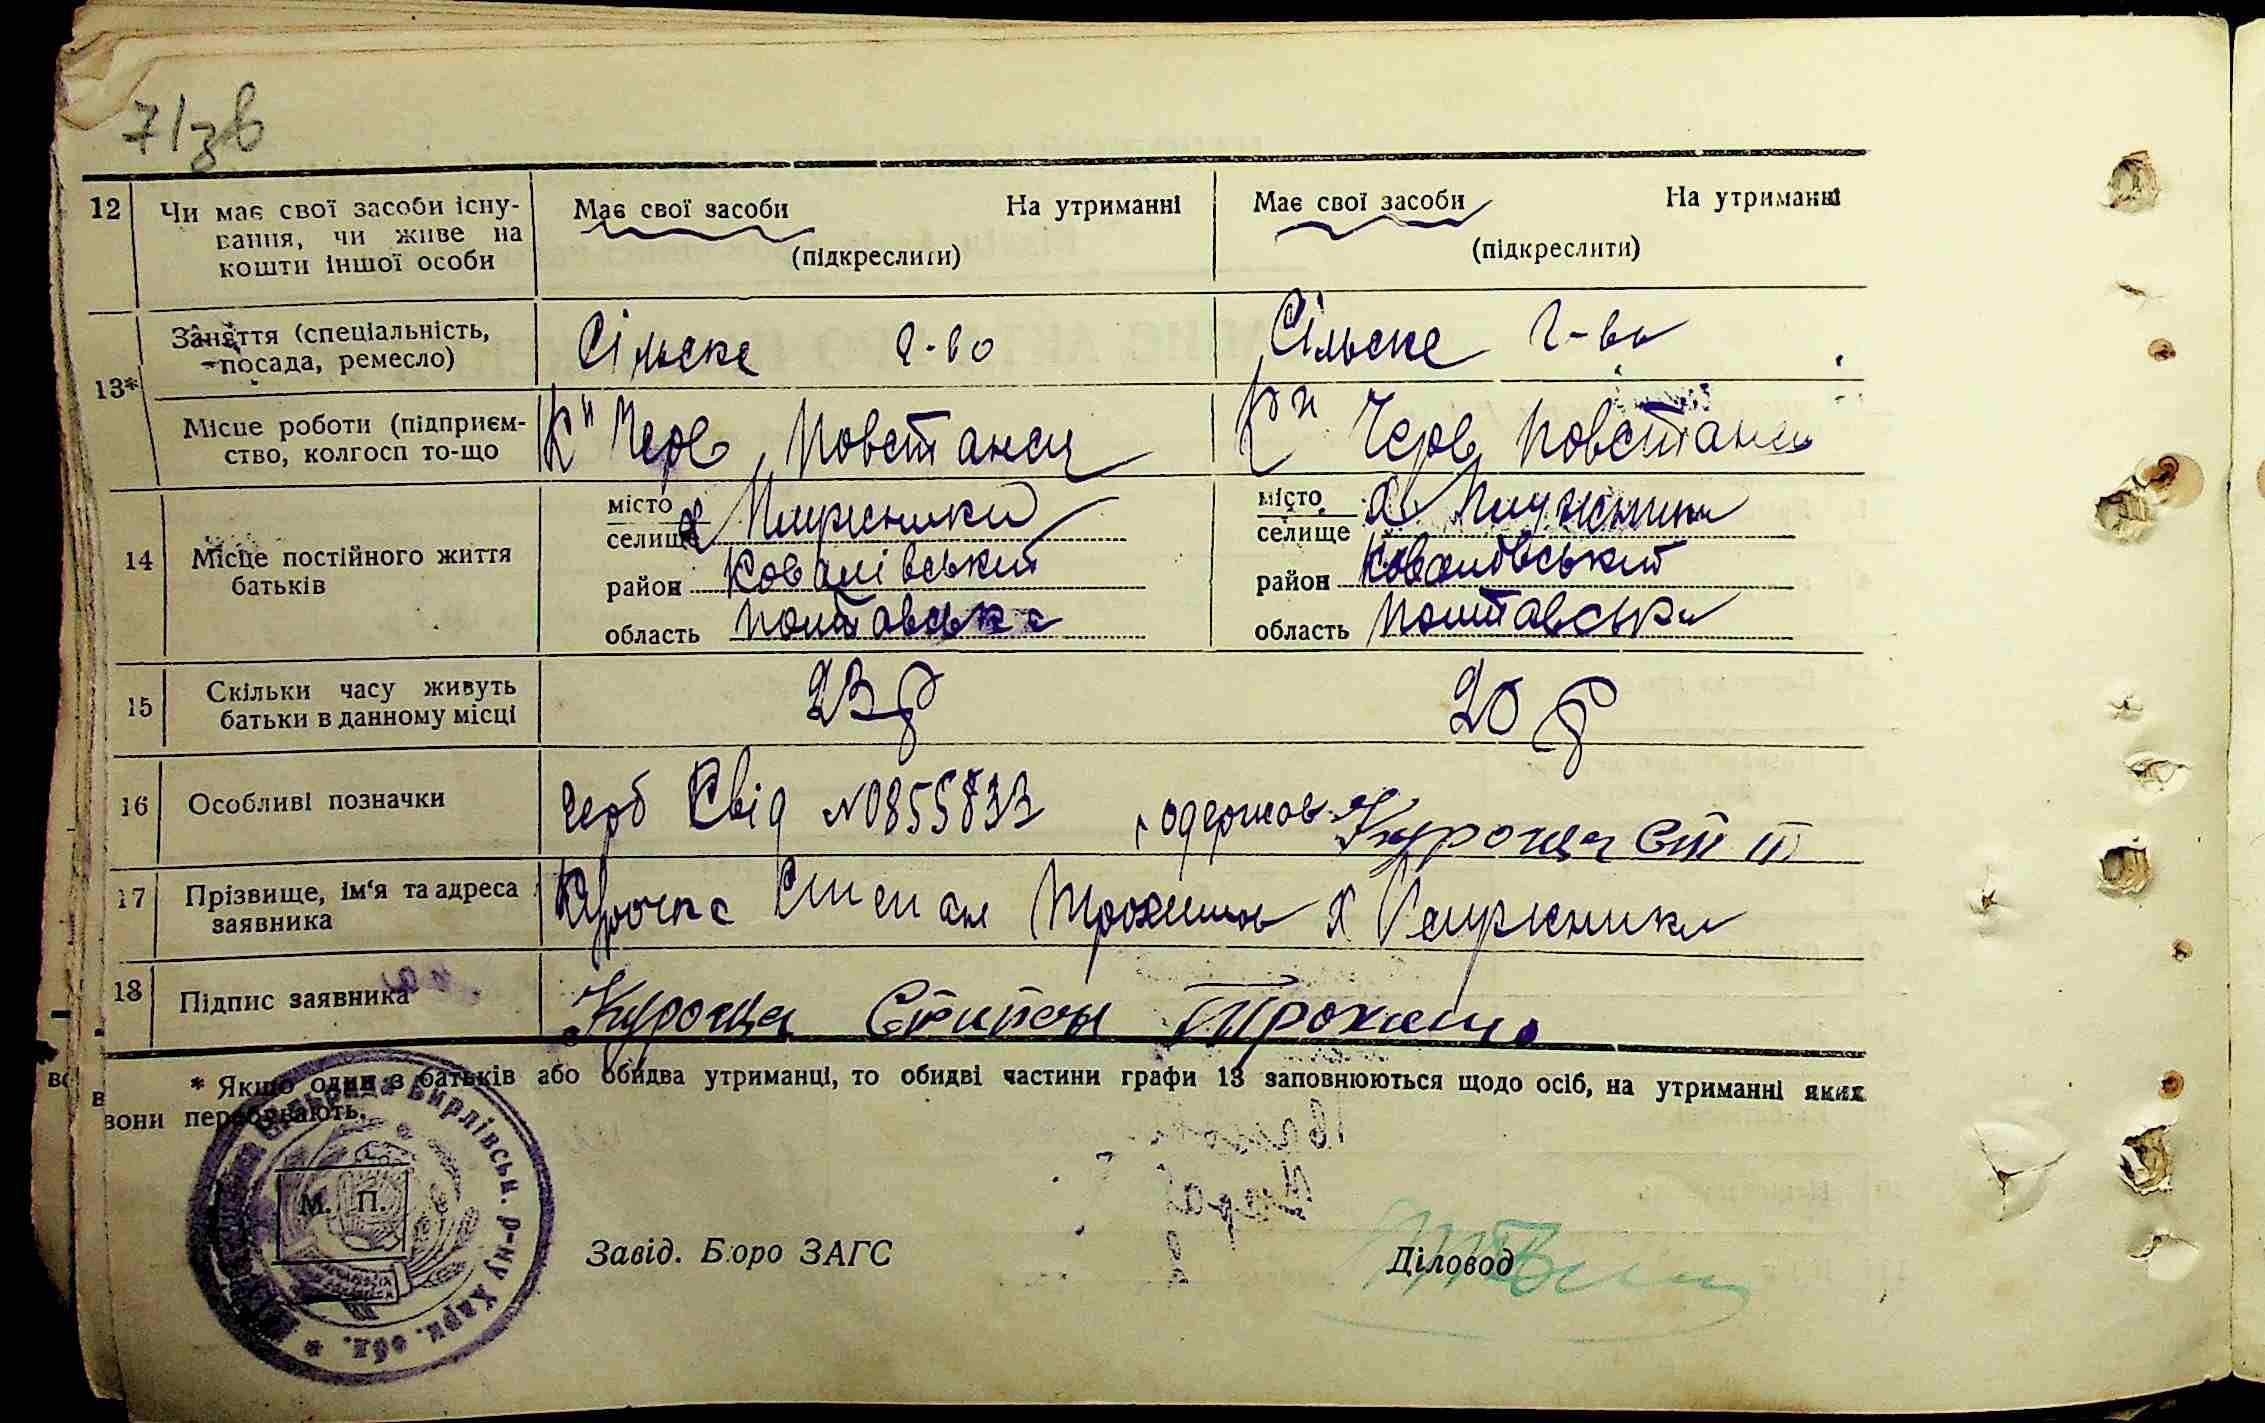 71зв
12 Чи має свої засоби існу-
вання, чи живе на
кошти іншої особи
Має свої засоби На утриманні
(підкреслити)
Має свої засоби На утриманні
(підкреслити)
13* Заняття (спеціальність,
посада, ремесло)
Сільське г-во
Сільське г-во
Місце роботи (підприєм-
ство, колгосп то-що
К" Черв Повстанец
К" Черв Повстанец
14 Місце постійного життя
батьків
місто
селище х
район Ковалівський
область Полтавська
місто
селище х
район Ковалівський
область Полтавська
15 Скільки часу живуть
батьки в данному місці
23 р
20 р
16 Особливі позначки
герб Свід №0855833 одержав Курочка Ст Т
17 Прізвище, ім'я та адреса
заявника
Курочка Степан Трохимов х
18 Підпис заявника
Курочка Степан Трохим.
* Якщо один з батьків або обидва утриманці, то обидві частини графи 13 заповнюються щодо осіб, на утриманні яких
вони перебувають.
Сільрада Бирлівськ. р-ну Харк. обл.
М. П.
Завід. Бюро ЗАГС
Діловод